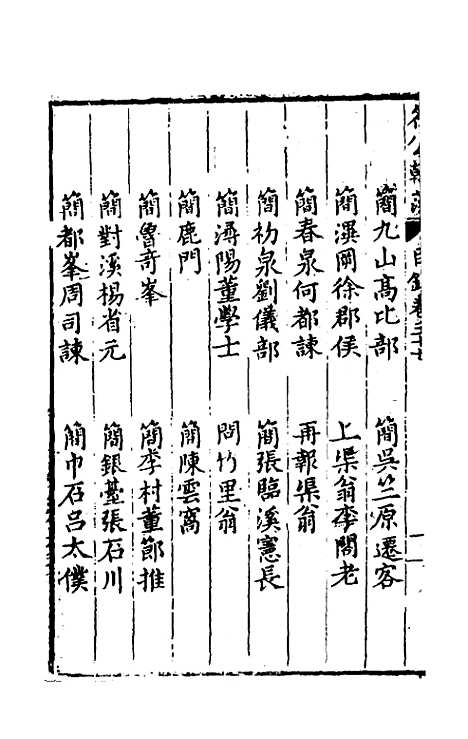 簡九山高比部　簡吳竺原遷客
簡潩岡徐郡侯　上渠翁李閣老
簡春泉何都諫　再報渠翁
簡初泉劉儀部　簡張臨溪憲長
簡潯陽董學士　問竹里翁
簡鹿門　簡陳雲窩
簡魯奇峯　簡李村董節推
簡對溪楊省元　簡銀臺張石川
簡都峯周司諫　簡巾石呂太僕